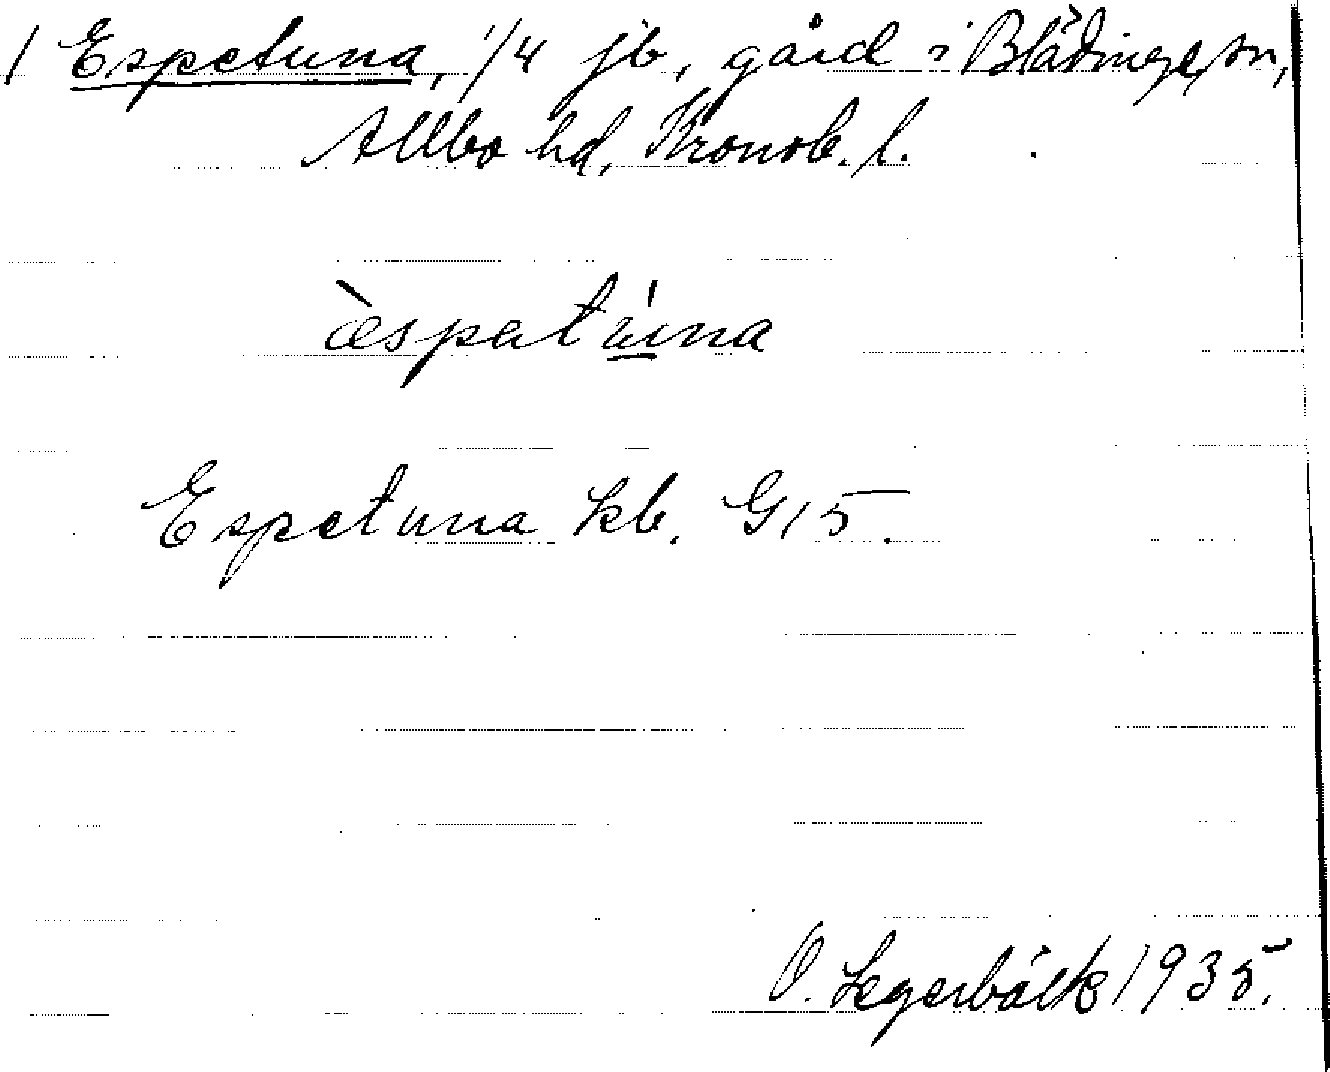 1 Espetuna, 1/4 jb, gård i Blädinge sn,
Allbo hd, Kronob. l.
æ̀spatúna
Espetuna kb. G15.
O. Segerbäck 1935.